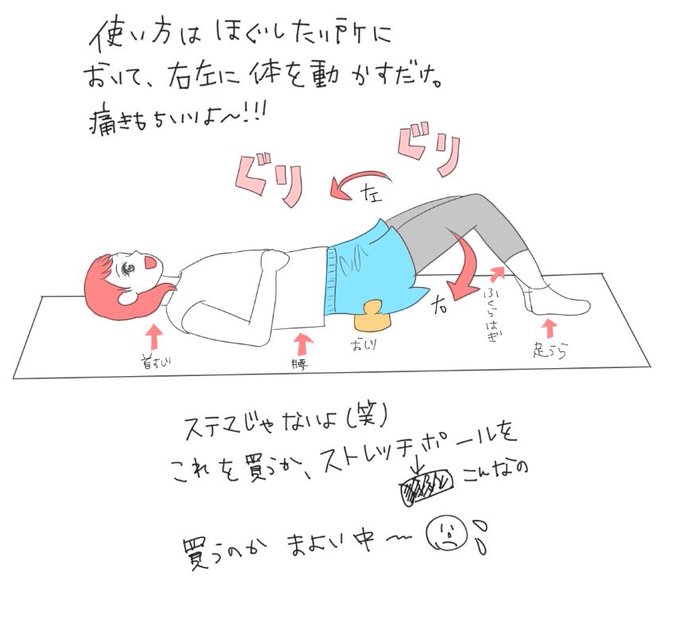 使い方は ほぐしたい所に
おいて、右左に 体を動かすだけ。
痛きもちいいよ〜!!!
ぐり
ぐり
左
右
首すい
腰
おしり
ふくらはぎ
足うら
ステマじゃないよ(笑)
これを買うか、ストレッチポールを
こんなの
買うのか まよい中〜